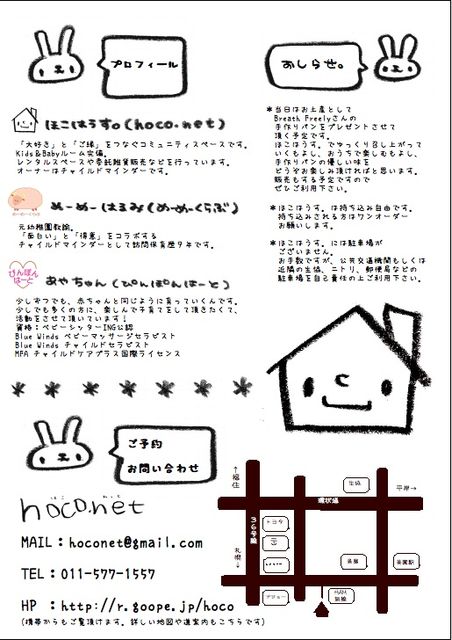 プロフィール
ほこはうす。(hoco.net)
「大好き」と「ご縁」をつなぐコミュニティスペースです。
Kids&Babyルーム完備。
レンタルスペースや委託雑貨販売などを行っています。
オーナーはチャイルドマインダーです。
めーめーはるみ(めーめーくらぶ)
元幼稚園教諭。
「面白い」と「得意」をコラボする
チャイルドマインダーとして訪問保育歴9年です。
ぴんぽん
はーと
あやちゃん(ぴんぽんはーと)
少しずつでも、赤ちゃんと同じように育っていくんです。
少しでも多くの方に、楽しんで子育てをして頂きたくて、
活動をさせて頂いています!
資格:ベビーシッターING公認
Blue Winds ベビーマッサージセラピスト
Blue Winds チャイルドセラピスト
MPA チャイルドケアプラス国際ライセンス
おしらせ。
*当日はお土産として
Breath Freelyさんの
手作りパンをプレゼントさせて
頂く予定です。
ほこはうす。でゆっくり召し上がって
いくもよし、おうちで楽しむもよし、
手作りパンの優しい味を
どうぞお楽しみ頂ければと思います。
販売もする予定ですので
ぜひご利用下さい。
*ほこはうす。は持ち込み自由です。
持ち込みされる方はワンオーダー
お願いします。
*ほこはうす。には駐車場が
ございません。
お手数ですが、公共交通機関もしくは
近隣の生協、ニトリ、郵便局などの
駐車場を自己責任の上ご利用下さい。
ご予約
お問い合わせ
ほこ ねっと
hoco.net
MAIL:hoconet@gmail.com
TEL:011-577-1557
HP :http://r.goope.jp/hoco
(携帯からもご覧頂けます。詳しい地図や道案内もこちらです)
↑福住
生協
平岸→
環状通
36号線
トヨタ
札幌↓